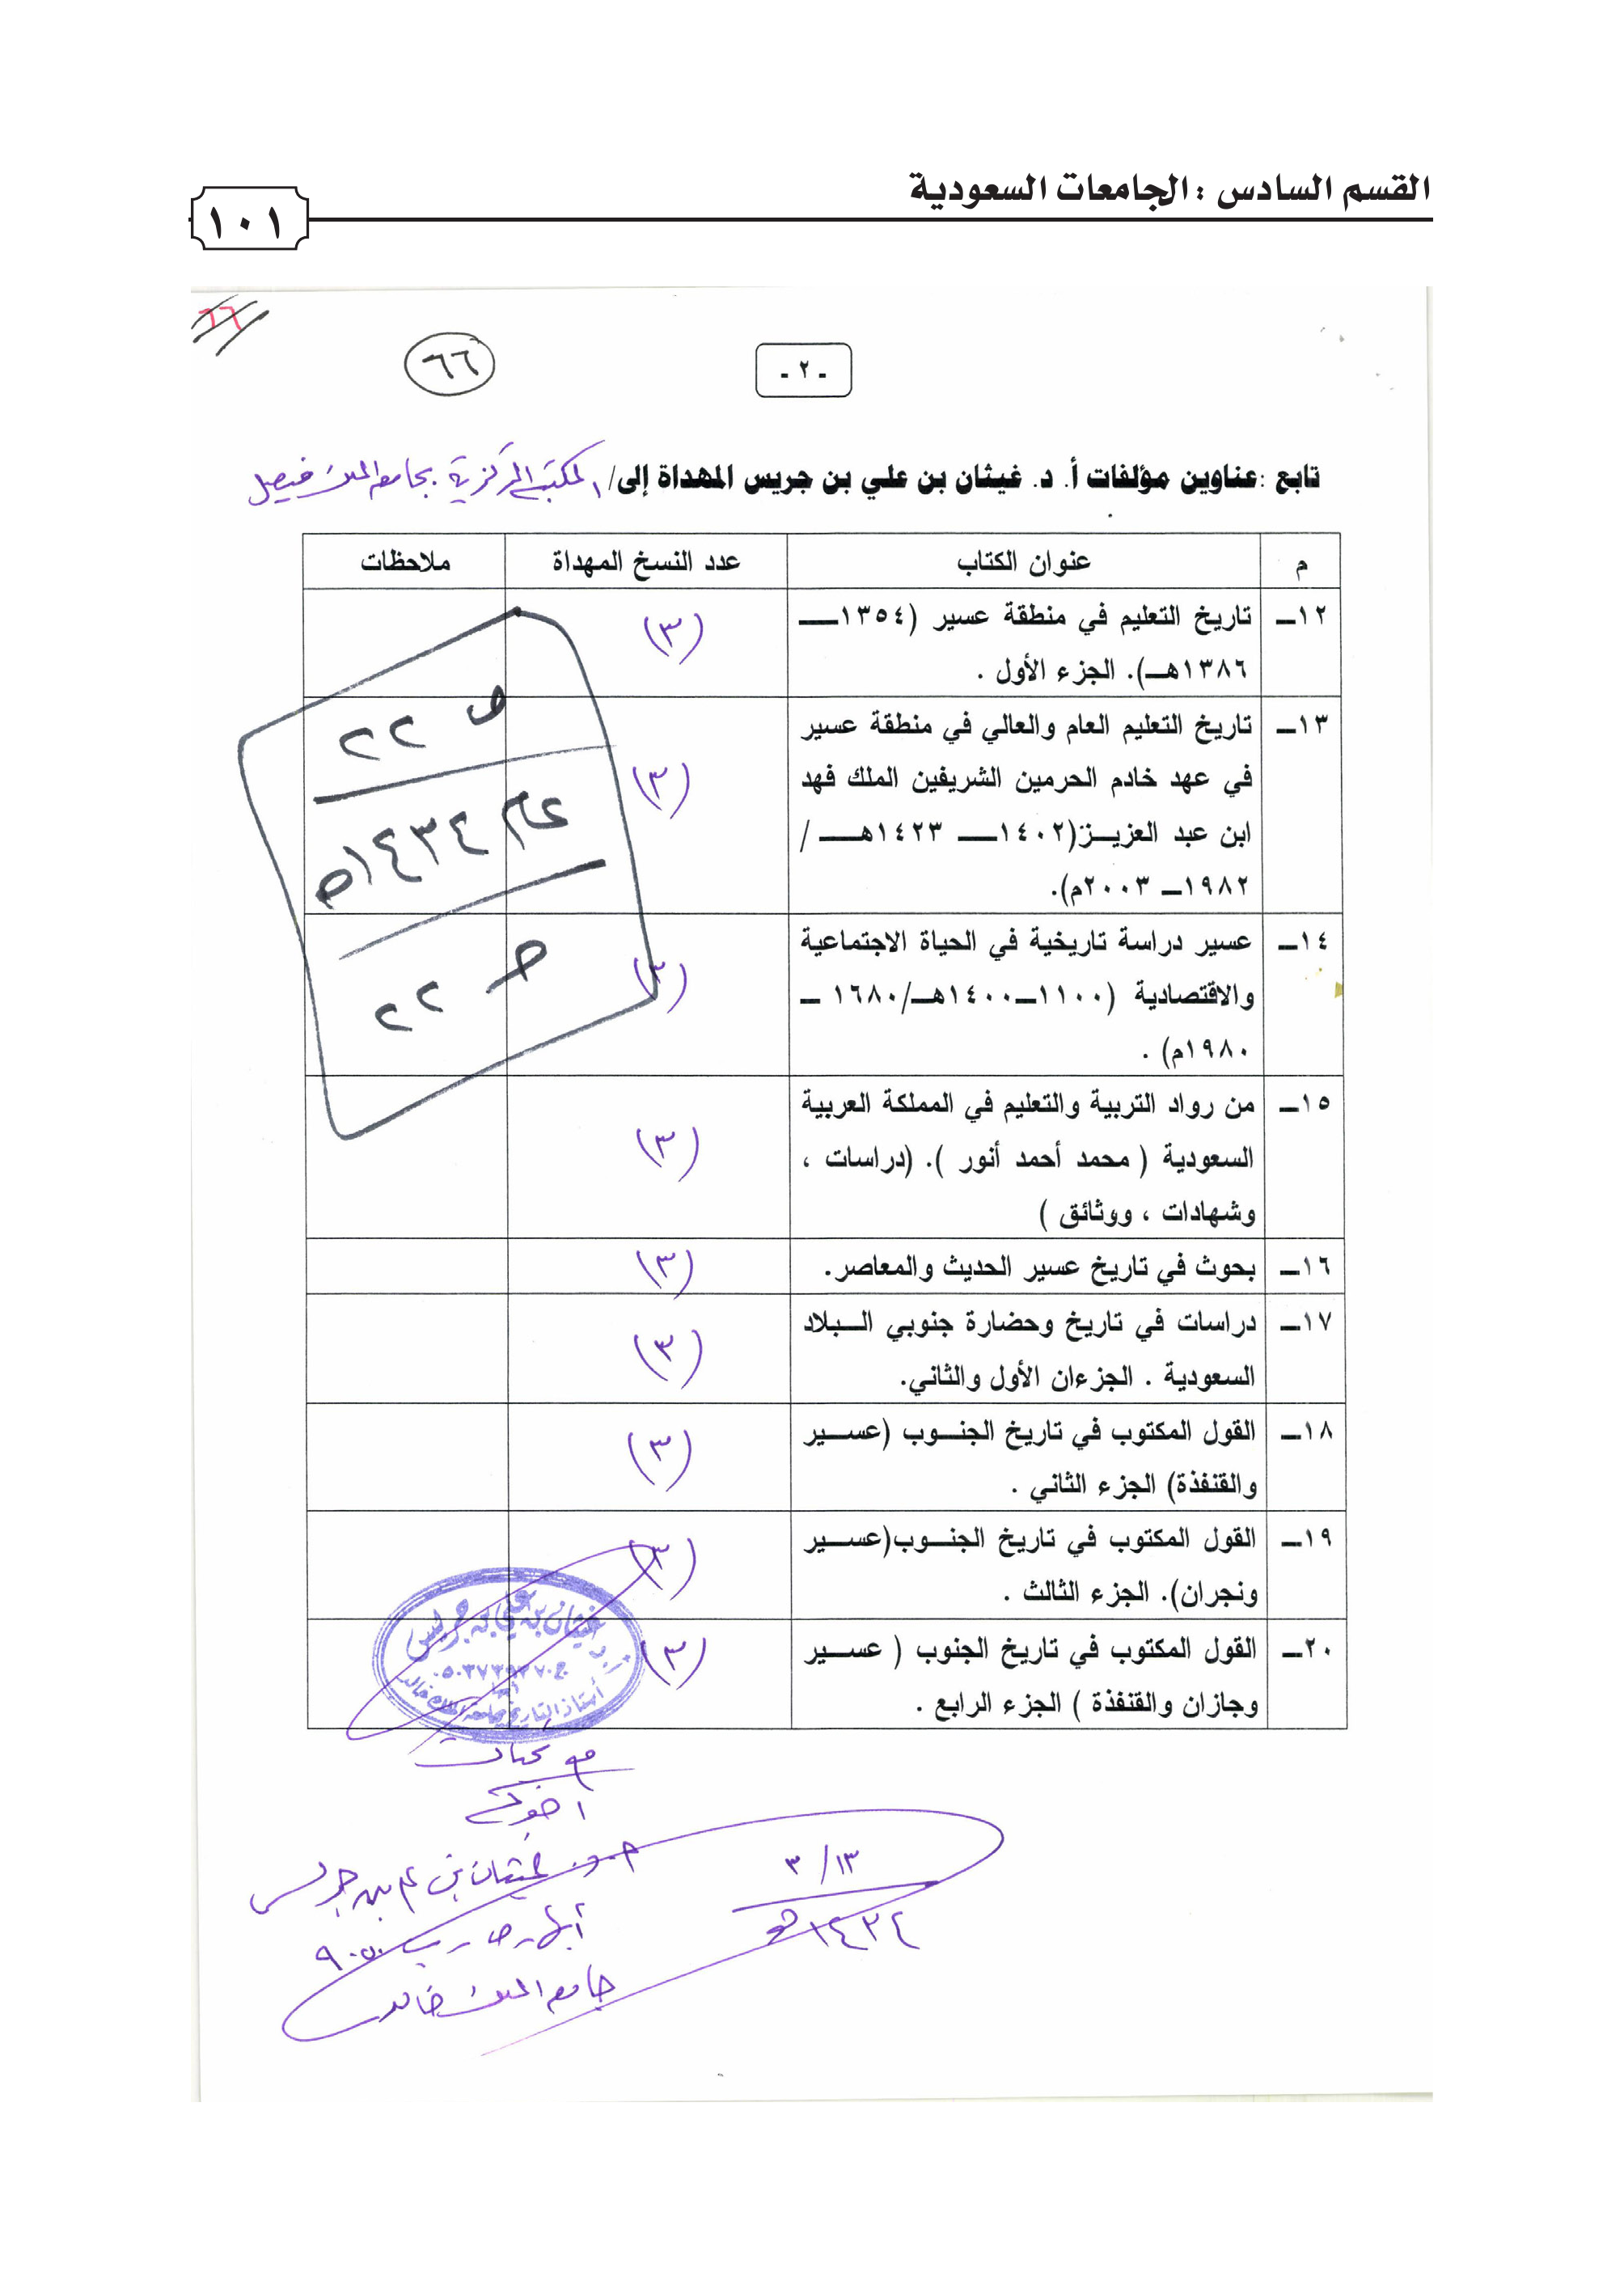 القسم السادس : الجامعات السعودية
١٠١
٦٦
٦٦
- ٢ -
تابع :عناوين مؤلفات أ. د. غيثان بن علي بن جريس المهداة إلى/ المكتبة المركزية بجامعة الملك فيصل
م عنوان الكتاب عدد النسخ المهداة ملاحظات
١٢ــ تاريخ التعليم في منطقة عسير (١٣٥٤ــ (٣)
١٣٨٦هـ). الجزء الأول .
١٣ــ تاريخ التعليم العام والعالي في منطقة عسير
في عهد خادم الحرمين الشريفين الملك فهد (٣)
ابن عبد العزيز(١٤٠٢ــ ١٤٢٣هـ /
١٩٨٢ــ ٢٠٠٣م).
١٤ــ عسير دراسة تاريخية في الحياة الاجتماعية
والاقتصادية (١١٠٠ــ١٤٠٠هـ/١٦٨٠ ــ (٣)
١٩٨٠م) .
١٥ــ من رواد التربية والتعليم في المملكة العربية
السعودية ( محمد أحمد أنور ). (دراسات ، (٣)
وشهادات ، ووثائق )
١٦ــ بحوث في تاريخ عسير الحديث والمعاصر. (٣)
١٧ــ دراسات في تاريخ وحضارة جنوبي البلاد (٣)
السعودية . الجزءان الأول والثاني.
١٨ــ القول المكتوب في تاريخ الجنوب (عسير (٣)
والقنفذة) الجزء الثاني .
١٩ــ القول المكتوب في تاريخ الجنوب(عسير (٣)
ونجران). الجزء الثالث .
٢٠ــ القول المكتوب في تاريخ الجنوب ( عسير (٣)
وجازان والقنفذة ) الجزء الرابع .
ص ٢٢
عام ١٤٣٤ه
حـ ٢٢
أ.د غيثان بن علي بن جريس
أستاذ التاريخ بجامعة الملك خالد
مع تحيات
أخوكم
أ.د. غيثان بن علي بن جريس
أبها - ص . ب ٩٠٥٠
جامعة الملك خالد
١٣/ ٣
١٤٣٤هـ